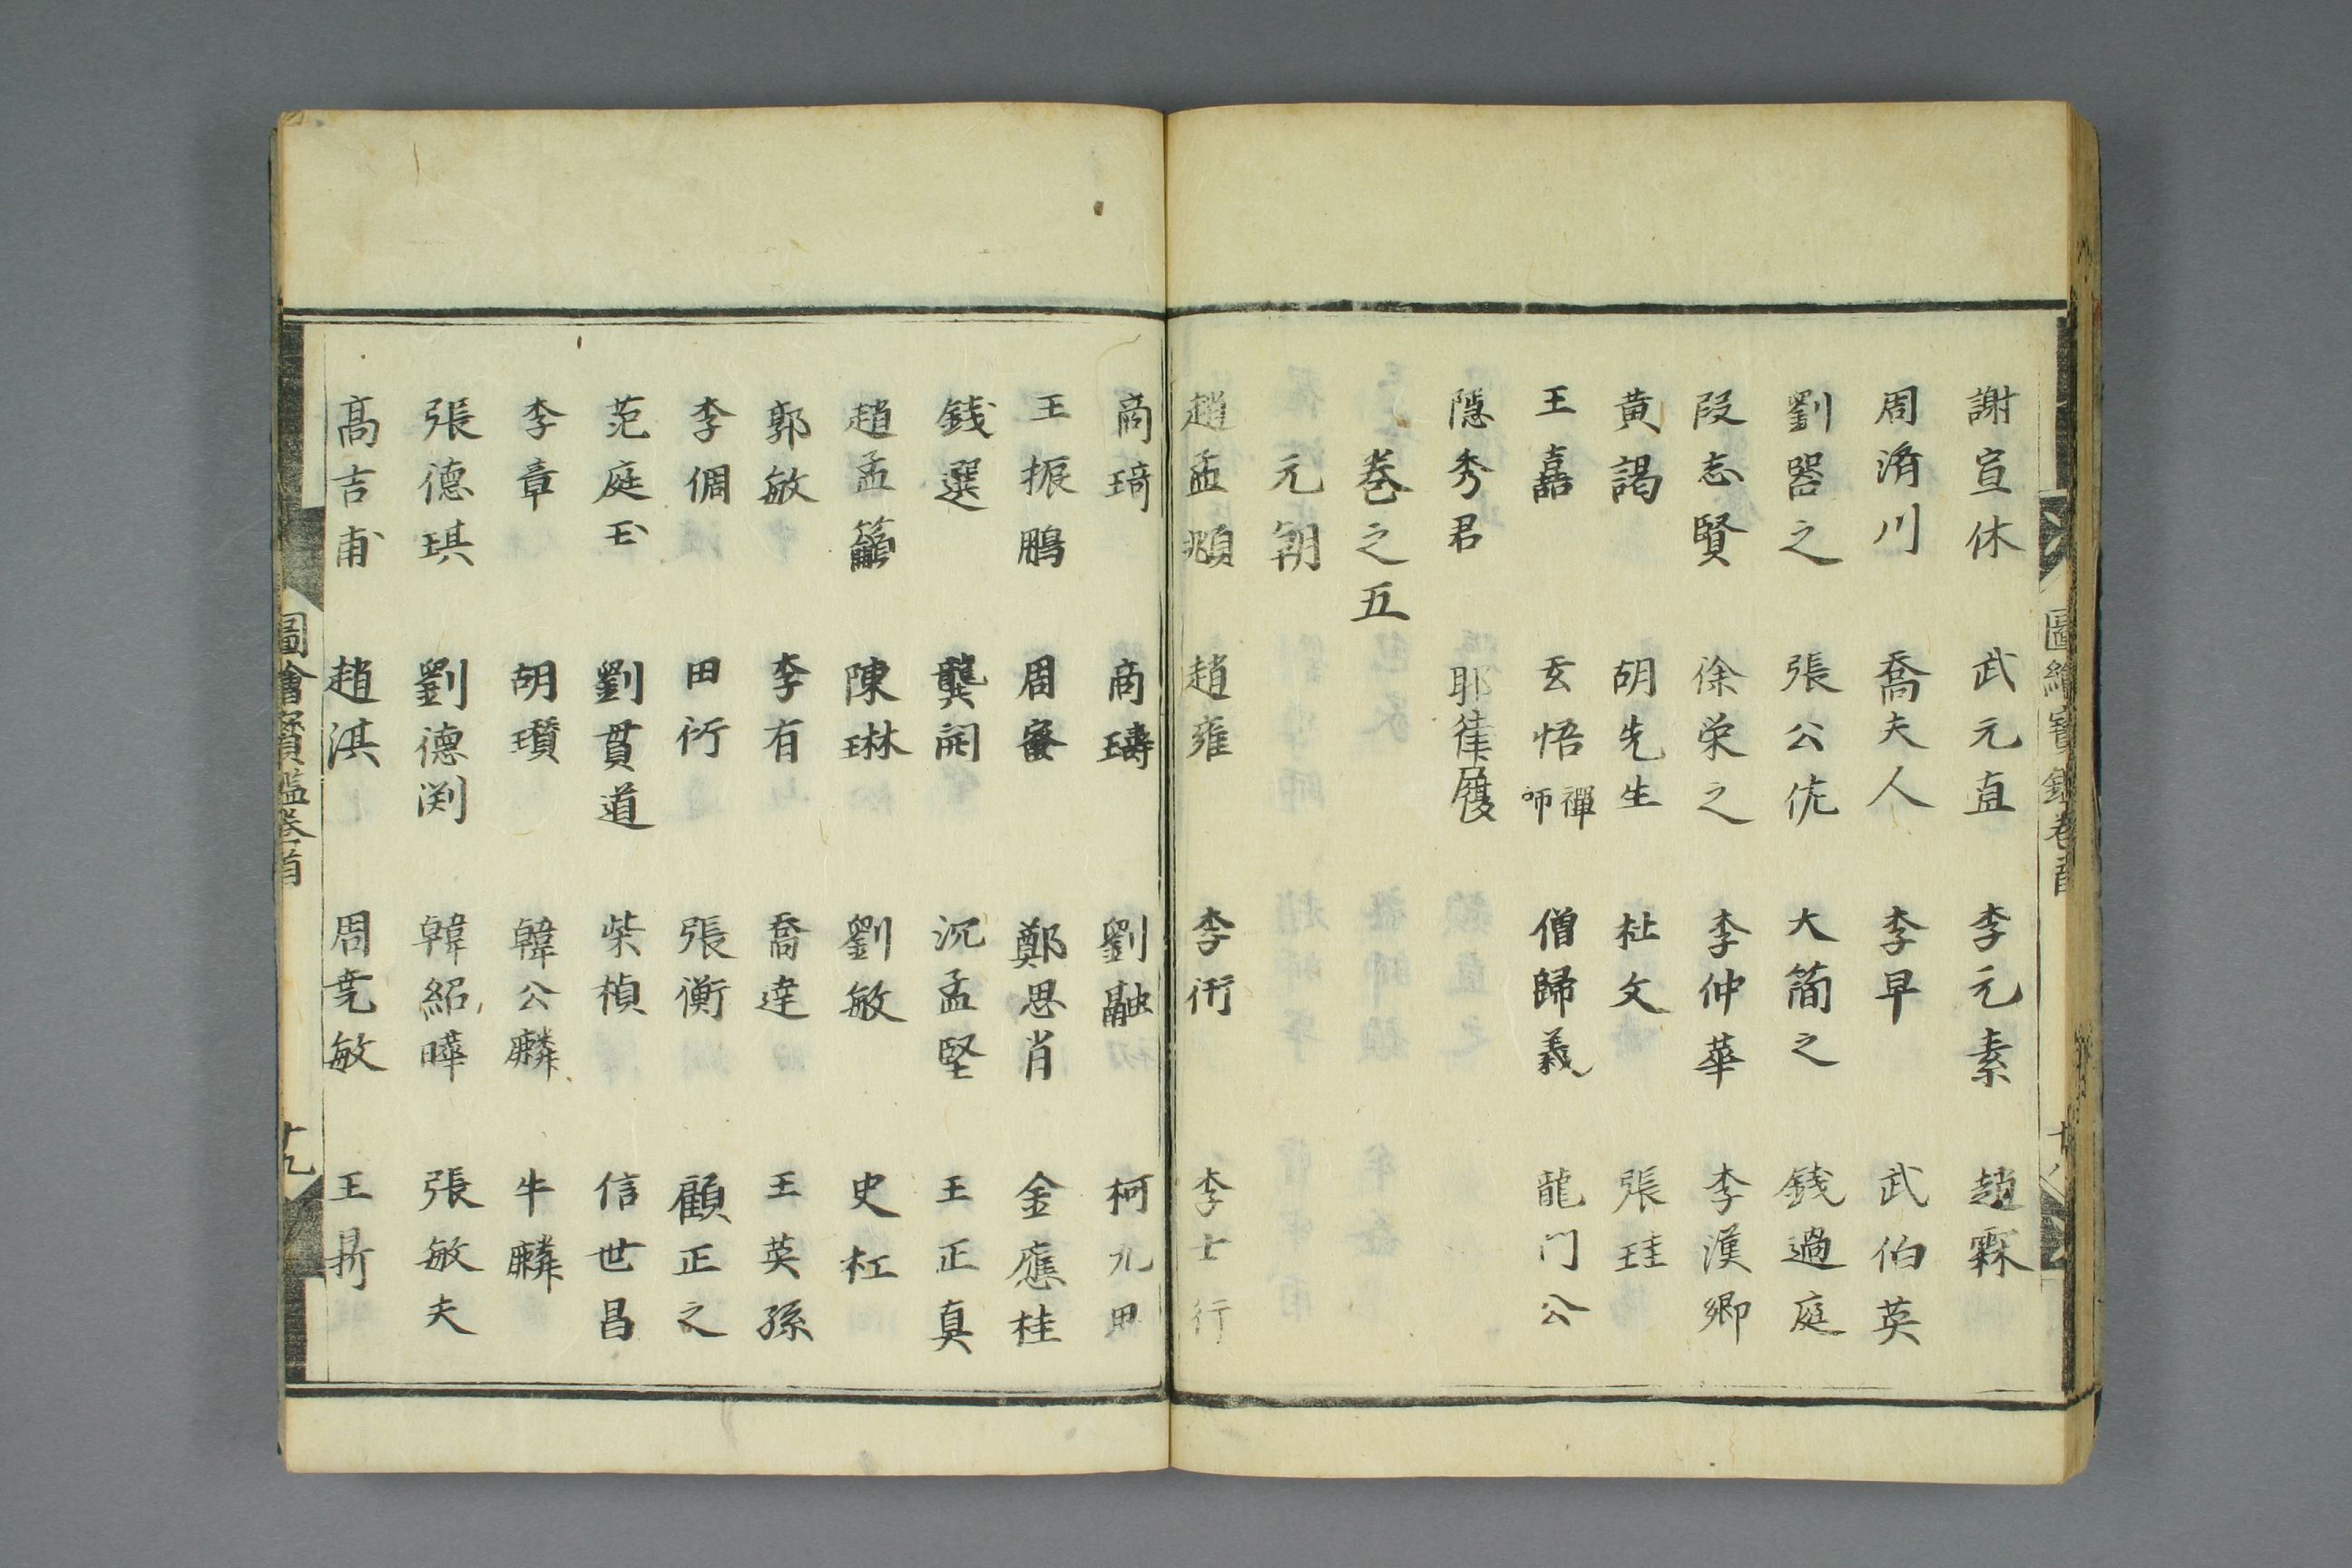 圖繪寶鑑卷首
十八
謝宣休 武元直 李元素 趙霖
周㳙川 喬夫人 李早 武伯英
劉器之 張公佐 大簡之 錢過庭
段志賢 徐荣之 李仲華 李漢卿
黄謁 胡先生 杜文 張珪
王嘉 玄悟禪師 僧歸義 龍门公
隱秀君 耶律履
卷之五
元朝
趙孟頫 趙雍 李衎 李士行
商琦 商璹 劉融 柯九思
王振鵬 周密 鄭思肖 金應桂
錢選 龔開 沉孟堅 王正真
趙孟籲 陳琳 劉敏 史杠
郭敏 李有 喬達 王英孫
李倜 田衍 張衡 顧正之
范庭玉 劉貫道 柴楨 信世昌
李章 胡瓚 韓公麟 牛麟
張德琪 劉德渕 韓紹曄 張敏夫
髙吉甫 趙淇 周堯敏 王鼎
圖繪寶鑑卷首
十九